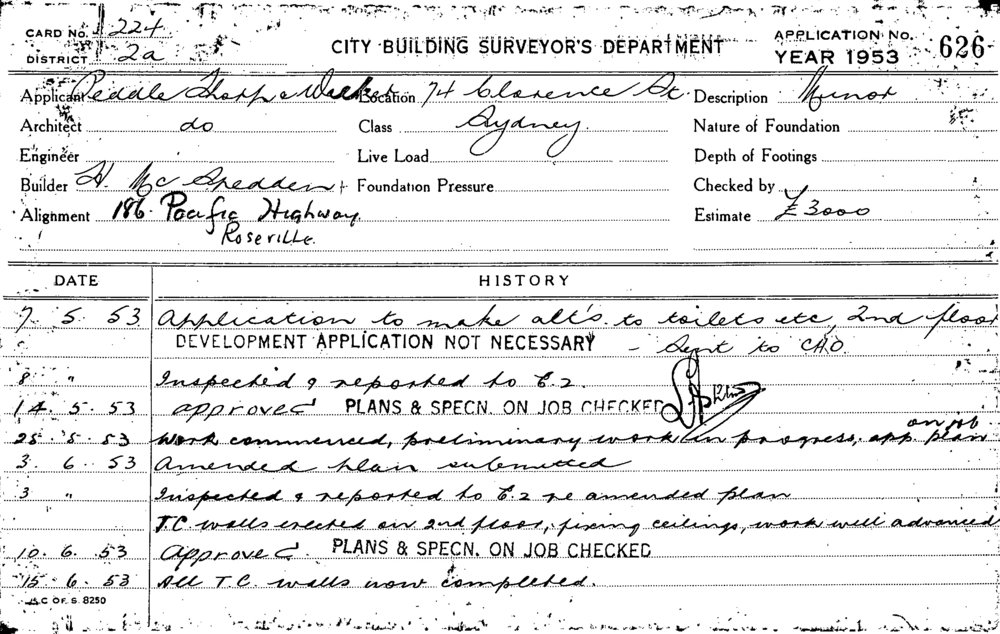 CARD No. 224
DISTRICT 2a
CITY BUILDING SURVEYOR'S DEPARTMENT
APPLICATION No. 626
YEAR 1953
Applicant Peddle Thorp & Walker Location 74 Clarence St. Description Minor
Architect do Class Sydney Nature of Foundation
Engineer Live Load Depth of Footings
Builder H. McSpedden Foundation Pressure Checked by
Alignment 186 Pacific Highway Estimate £3000
Roseville
DATE HISTORY
7. 5. 53 Application to make alt's. to toilets etc, 2nd floor
" DEVELOPMENT APPLICATION NOT NECESSARY - Sent to CHO.
8 " Inspected & reported to E.2.
14. 5. 53 approved PLANS & SPECN. ON JOB CHECKED
on job
28. 5. 53 Work commenced, preliminary work in progress, app. plan
3. 6. 53 Amended plan submitted
3 " Inspected & reported to E.2 re amended plan
T.C. walls erected on 2nd floor, fixing ceilings, work well advanced
10. 6. 53 Approved. PLANS & SPECN. ON JOB CHECKED
15. 6. 53 All T.C. walls now completed.
C OF S. 8250